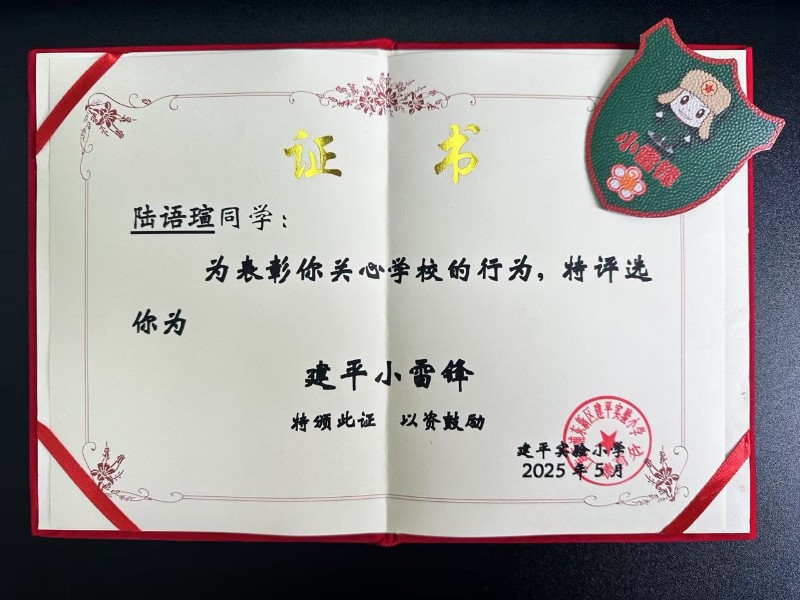 证 书
小雷锋
陆语瑄同学：
为表彰你关心学校的行为，特评选
你为
建平小雷锋
特颁此证 以资鼓励
建平实验小学
2025年5月
浦东新区建平实验小学